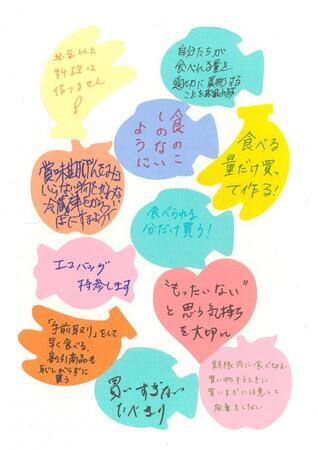 必要以上
料理は
作りません
!
自分たちが
食べれる量を
適切に買物する
ことを
食のこ
しのない
ように
食べる
量だけ買っ
て作る!
賞味期げんをみ
食べられる
分だけ買う!
エコバッグ
持参します
"もったいない"
と思う気持ち
を大切に
「手前取り」をして
早く食べる、
割引商品も
恥じがらずに
買う
買いすぎない
たべきり
期限内に食べ切る
買い物するときに
買いすぎに注意して
廃棄をしない